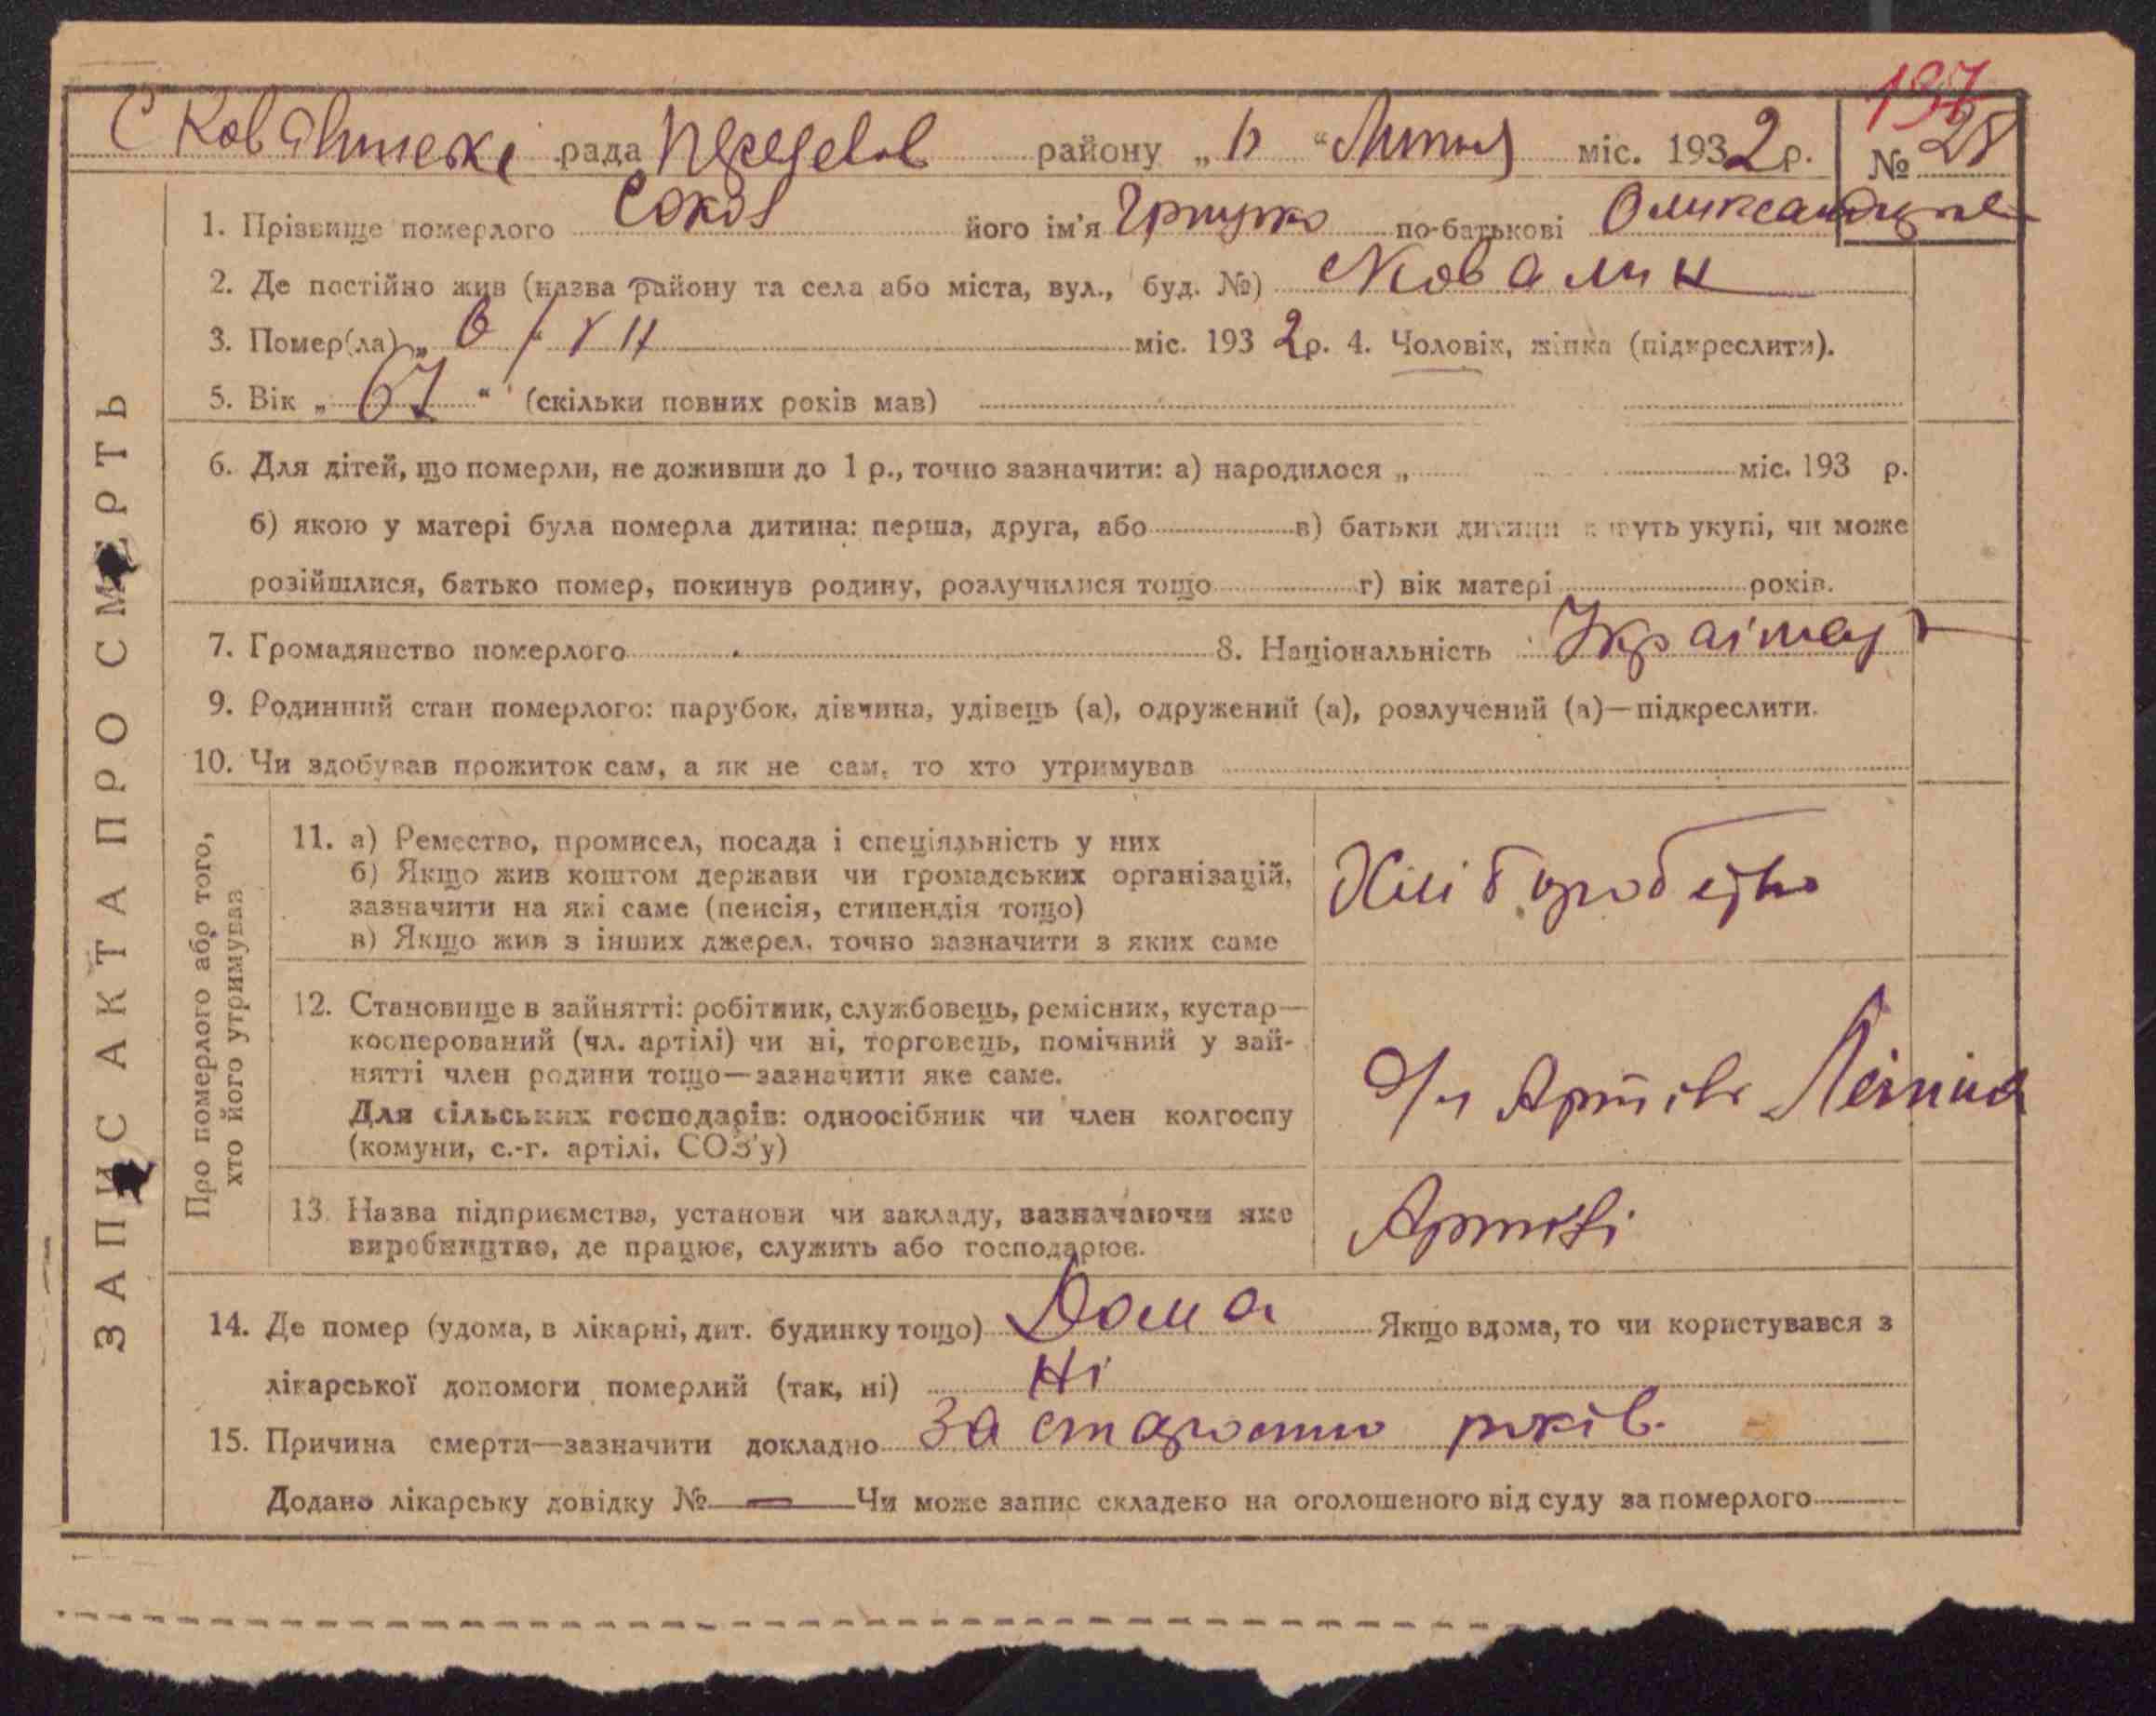 197
С Ковалинські рада району „6“ Липня міс. 1932 р. № 28
1. Прізвище померлого Сокол його ім'я Грицько по-батькові
2. Де постійно жив (назва району та села або міста, вул., буд. №) с Ковалин
3. Помер(ла) „6/“ VII міс. 1932 р. 4. Чоловік, жінка (підкреслити).
5. Вік „67“ (скільки повних років мав)
6. Для дітей, що померли, не доживши до 1 р., точно зазначити: а) народилося „ міс. 193 р.
б) якою у матері була померла дитина: перша, друга, або в) батьки дитини живуть укупі, чи може
розійшлися, батько помер, покинув родину, розлучилися тощо г) вік матері років.
7. Громадянство померлого 8. Національність Українец
9. Родинний стан померлого: парубок, дівчина, удівець (а), одружений (а), розлучений (а)—підкреслити.
10. Чи здобував прожиток сам, а як не сам, то хто утримував
ЗАПИС АКТА ПРО СМЕРТЬ
Про померлого або того,
хто його утримував
11. а) Ремество, промисел, посада і спеціяльність у них
б) Якщо жив коштом держави чи громадських організацій,
зазначити на які саме (пенсія, стипендія тощо)
в) Якщо жив з інших джерел, точно зазначити з яких саме
Хліборобство
12. Становище в зайнятті: робітник, службовець, ремісник, кустар—
кооперований (чл. артілі) чи ні, торговець, помічний у зай-
нятті член родини тощо—зазначити яке саме.
Для сільських господарів: одноосібник чи член колгоспу
(комуни, с.-г. артілі, СОЗ'у)
Артілі Леніна
13. Назва підприємства, установи чи закладу, зазначаючи яке
виробництво, де працює, служить або господарює.
Артілі
14. Де помер (удома, в лікарні, дит. будинку тощо) Дома Якщо вдома, то чи користувався з
лікарської допомоги померлий (так, ні) Ні
15. Причина смерти—зазначити докладно За старостю років.
Додано лікарську довідку № — Чи може запис складено на оголошеного від суду за померлого